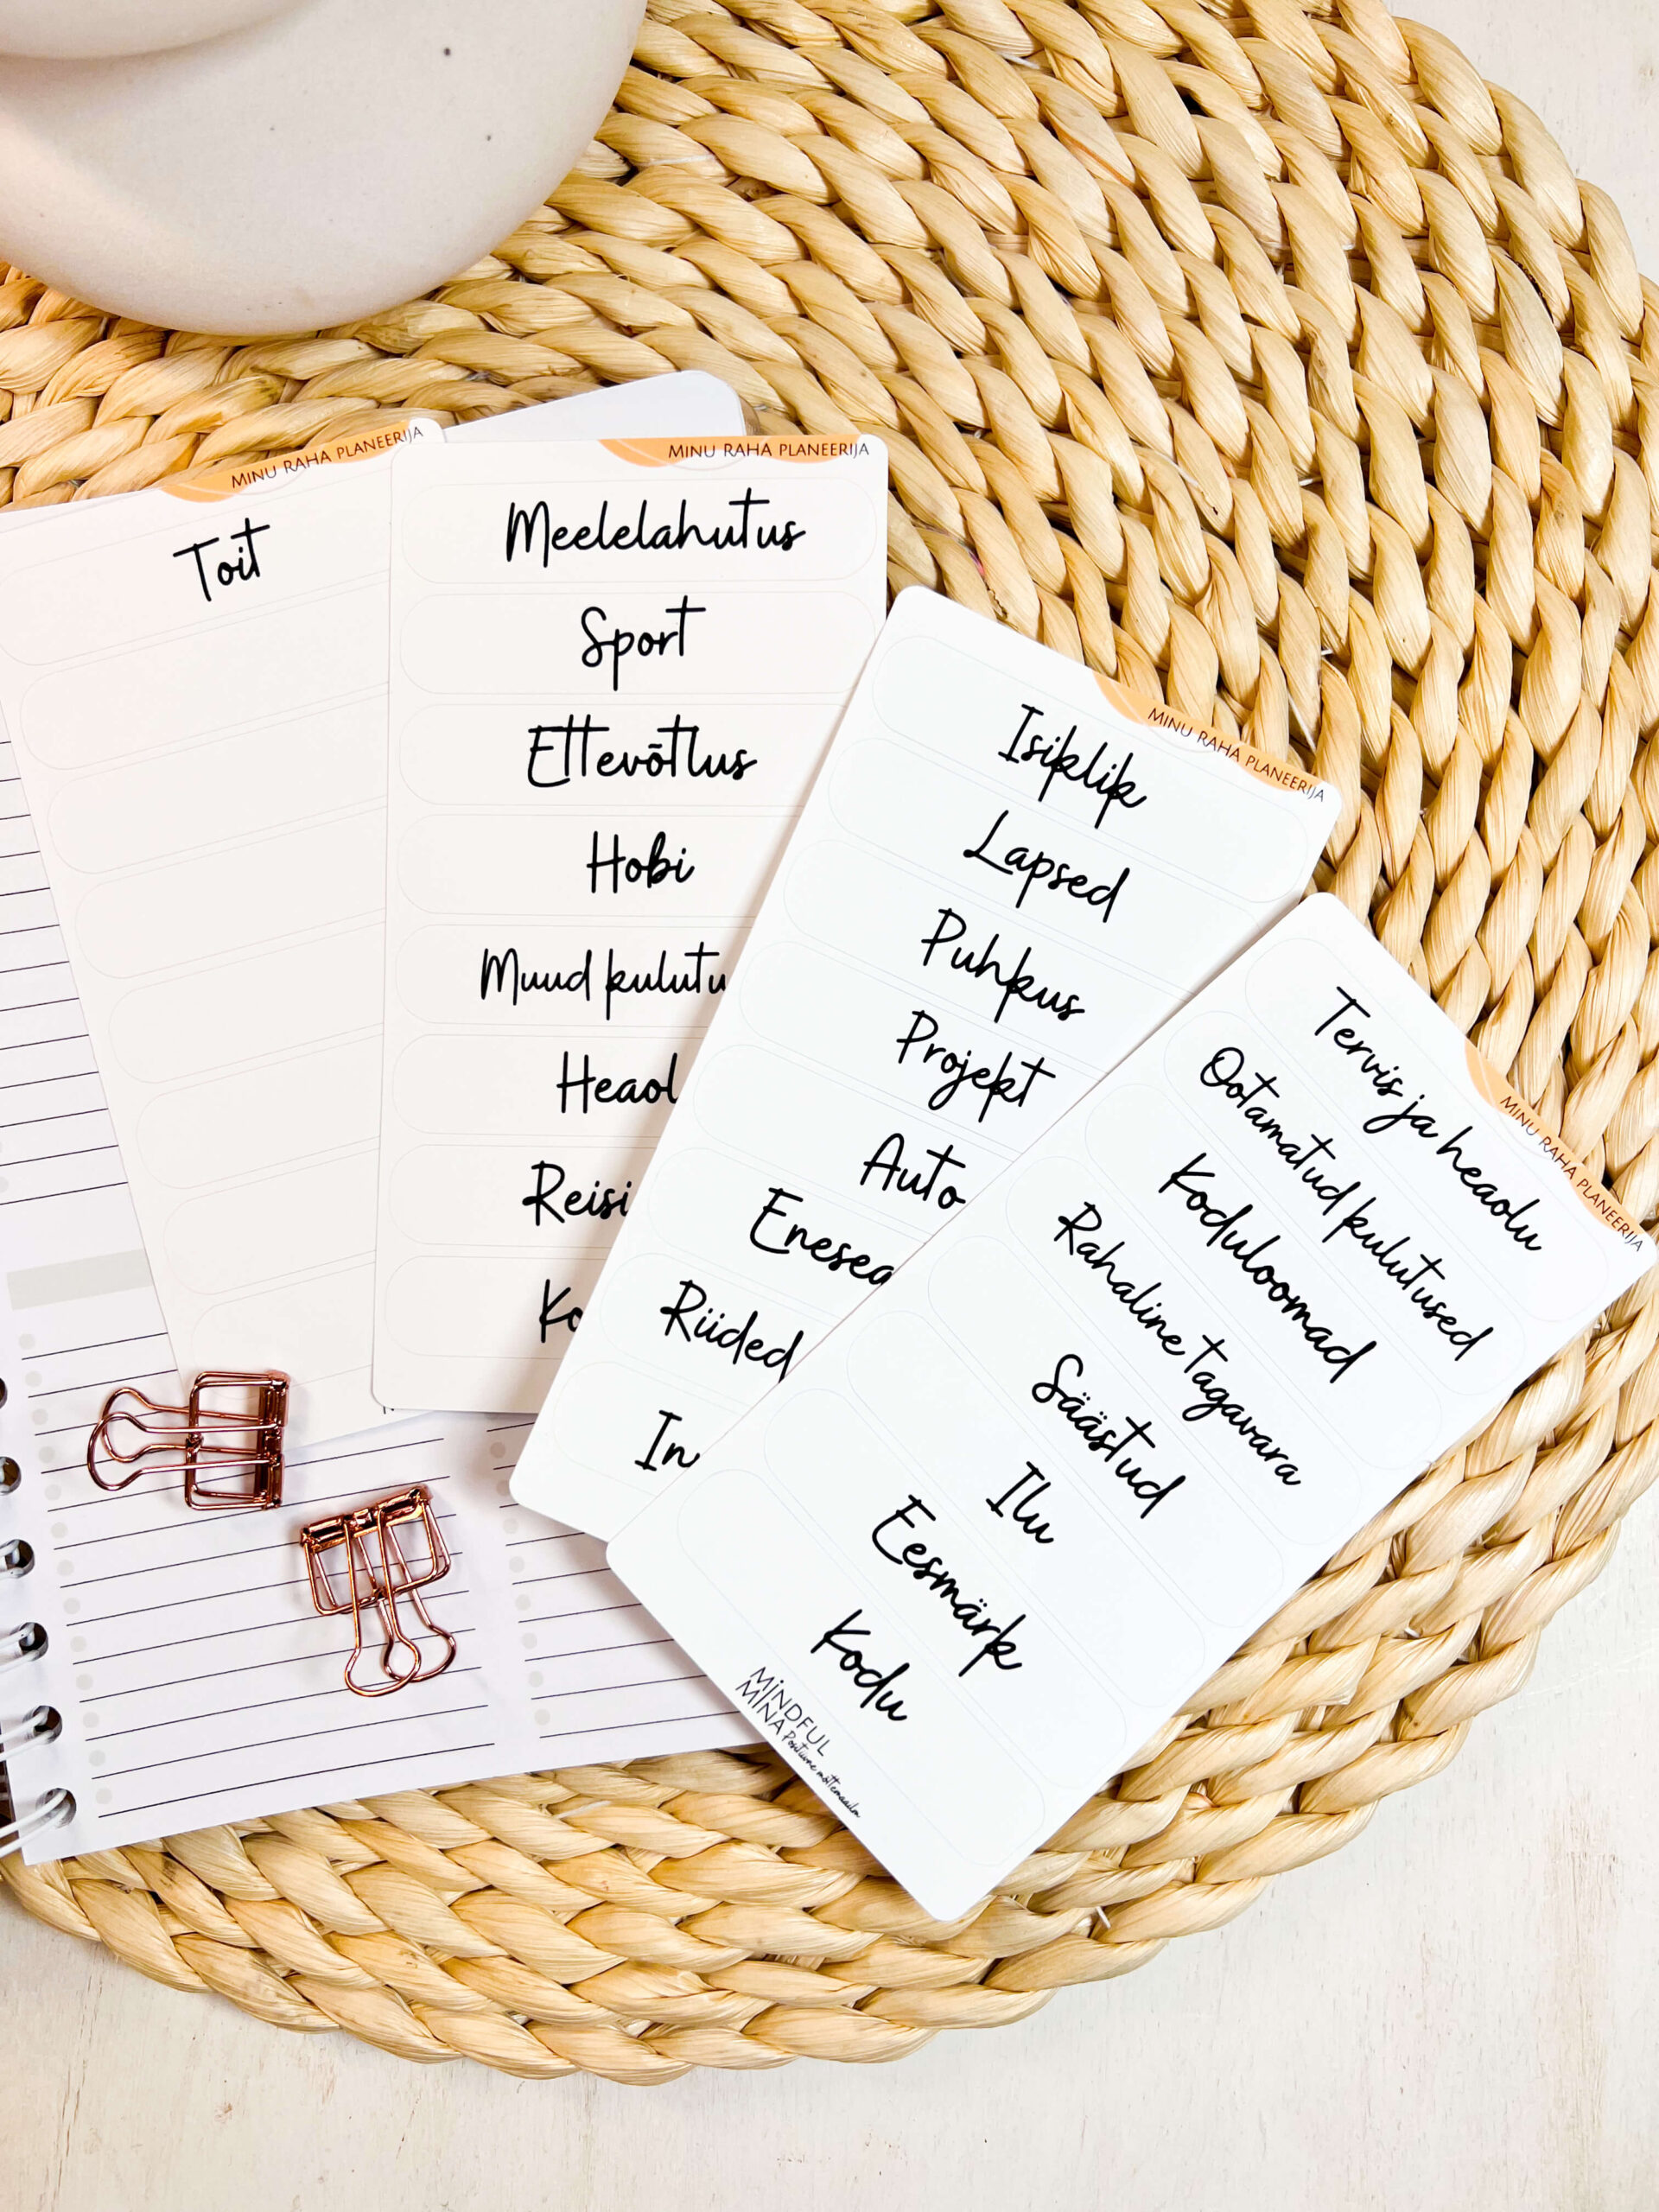 MINU RAHA PLANEERIJA
Toit
MINU RAHA PLANEERIJA
Meelelahutus
Sport
Ettevõtlus
Hobi
Muud kulutu
Heaol
Reisi
Ko
MINU RAHA PLANEERIJA
Isiklik
Lapsed
Puhkus
Projekt
Auto
Enesea
Riided
In
MINU RAHA PLANEERIJA
Tervis ja heaolu
Ootamatud kulutused
Koduloomad
Rahaline tagavara
Säästud
Ilu
Eesmärk
Kodu
MINDFUL
MINA Positiivne mõttemaailm